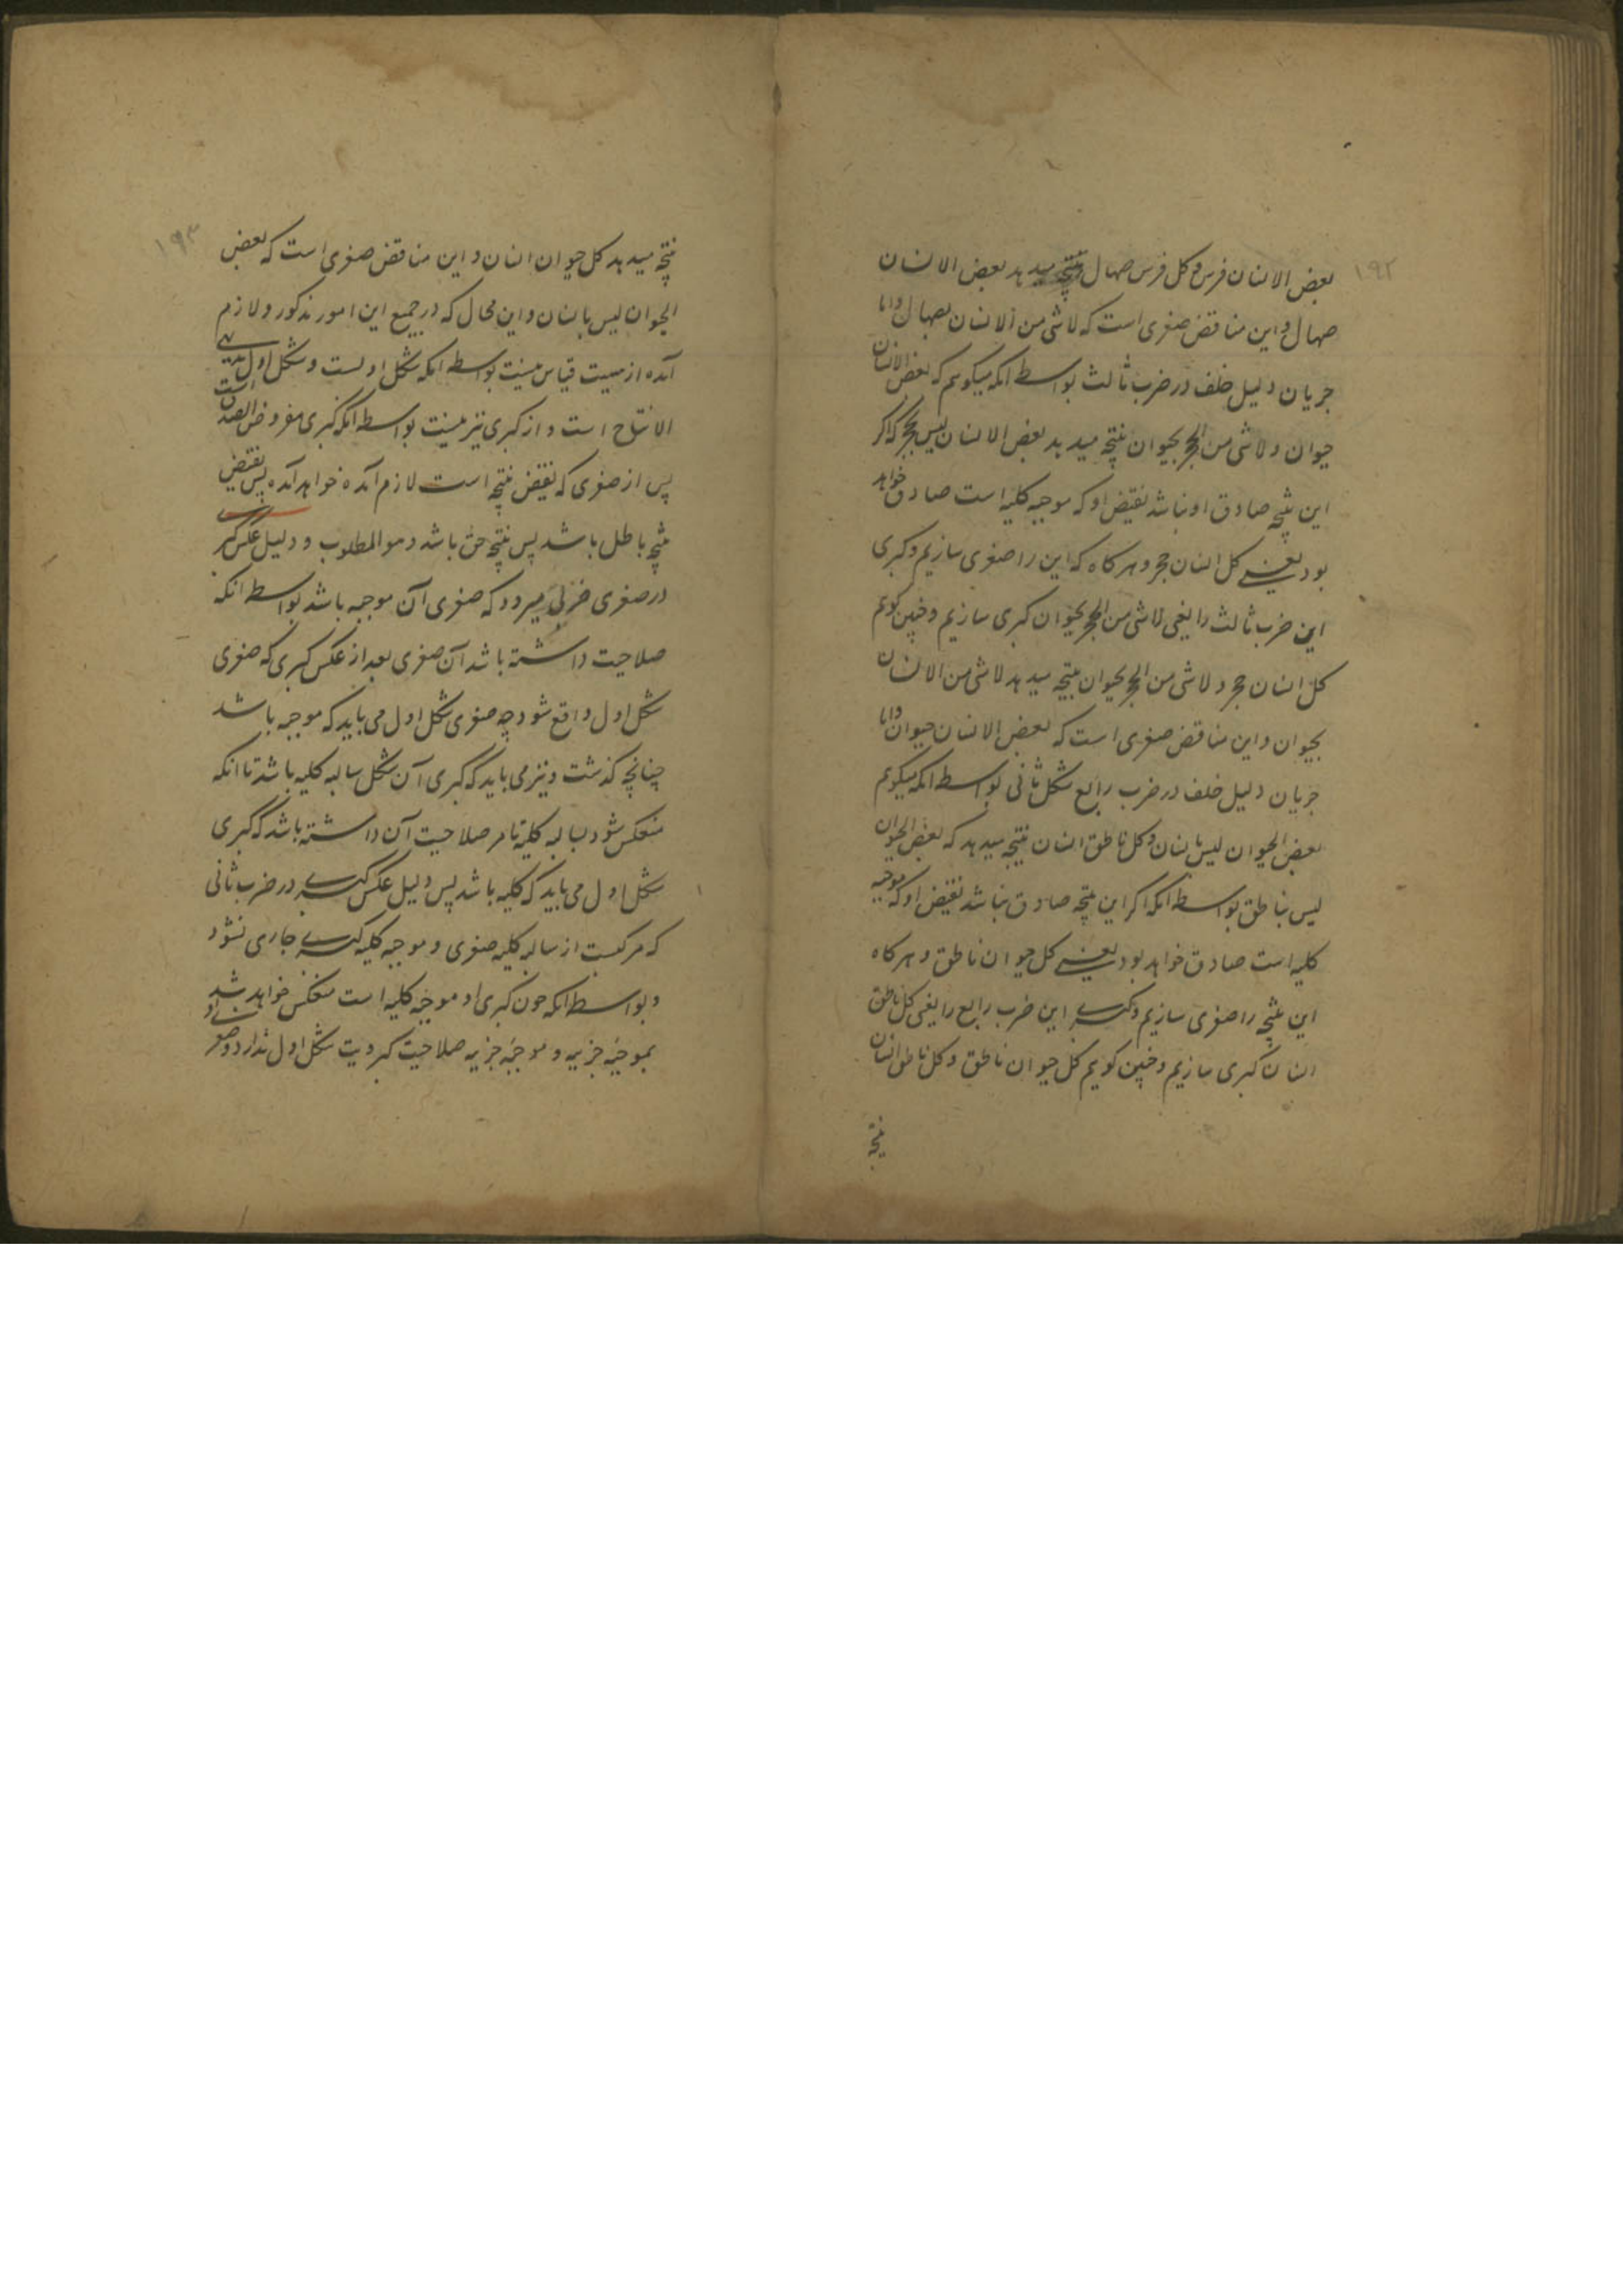 ۱۹۲
بعض الانسان فرس و کل فرس صهال نتیجه میدهد بعض الانسان
صهال و این مناقض صغری است که لاشی من الانسان بصهال و اما
جریان دلیل خلف در ضرب ثالث بواسطه انکه میکویم که بعض الانسان
حیوان و لاشی من الحجر بحیوان نتیجه میدهد بعض الانسان لیس بحجر که اکر
این نتیجه صادق او نباشد نقیض او که موجبه کلیه است صادق خواهد
بود یعنی کل انسان حجر و هرکاه که این را صغری سازیم و کبری
این ضرب ثالث را یعنی لاشی من الحجر بحیوان کبری سازیم و چنین کویم
کل انسان حجر و لاشی من الحجر بحیوان نتیجه میدهد لاشی من الانسان
بحیوان و این مناقض صغری است که بعض الانسان حیوان و اما
جریان دلیل خلف در ضرب رابع شکل ثانی بواسطه انکه میکویم
بعض الحیوان لیس بانسان و کل ناطق انسان نتیجه میدهد که بعض الحیوان
لیس بناطق بواسطه انکه اکر این نتیجه صادق نباشد نقیض او که موجبه
کلیه است صادق خواهد بود یعنی کل حیوان ناطق و هرکاه
این نتیجه را صغری سازیم و کبری این ضرب رابع را یعنی کل ناطق
انسان کبری سازیم و چنین کویم کل حیوان ناطق و کل ناطق انسان
نتیجه
۱۹۳
نتیجه میدهد کل حیوان انسان و این مناقض صغری است که بعض
الحیوان لیس بانسان و این محال که در جمیع این امور مذکور و لازم
آمده از هیئت قیاس نیست بواسطه انکه شکل اولست و شکل اول بدیهی
الانتاج است و از کبری نیز نیست بواسطه انکه کبری مفروض الصدق است
پس از صغری که نقیض نتیجه است لازم آمده خواهد آمد پس نقیض
نتیجه باطل باشد پس نتیجه حق باشد و هو المطلوب و دلیل عکس کبری
در صغری ضربی میرود که صغری آن موجبه باشد بواسطه انکه
صلاحیت داشته باشد آن صغری بعد از عکس کبری که صغری
شکل اول واقع شود چه صغری شکل اول می باید که موجبه باشد
چنانچه کذشت و نیز می باید که کبری آن شکل سالبه کلیه باشد تا انکه
منعکس شود بسالبه کلیه تا مر صلاحیت آن داشته باشد که کبری
شکل اول می باید که کلیه باشد پس دلیل عکس کبری در ضرب ثانی
که مرکبست از سالبه کلیه صغری و موجبه کلیه کبری جاری نشود
و بواسطه انکه چون کبری او موجبه کلیه است منعکس خواهد شد
بموجبه جزیه و موجبه جزیه صلاحیت کبرویت شکل اول ندارد و صغری او